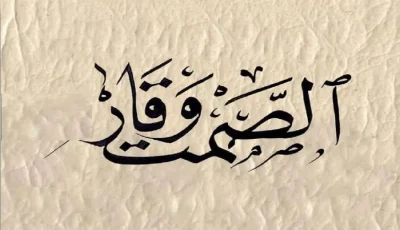 الصَّمت وَقَار